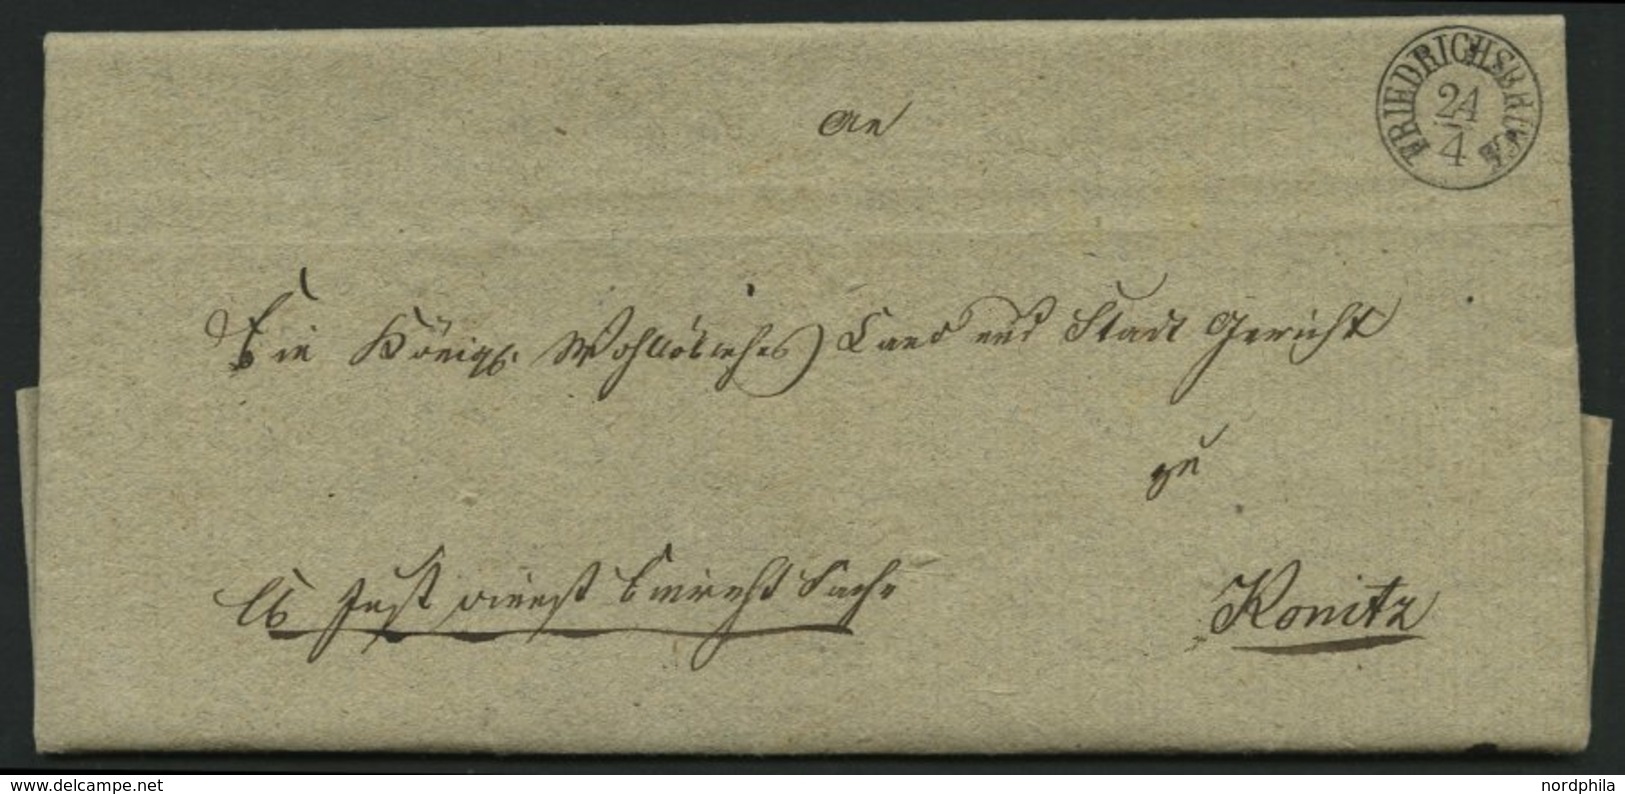 FRIEDRICHSBRUCH
24
4
An
Ein Königl. Wohllöbliches Land und Stadt Gericht
zu
Konitz
Just
Sache
www.delcampe.net
nordphila